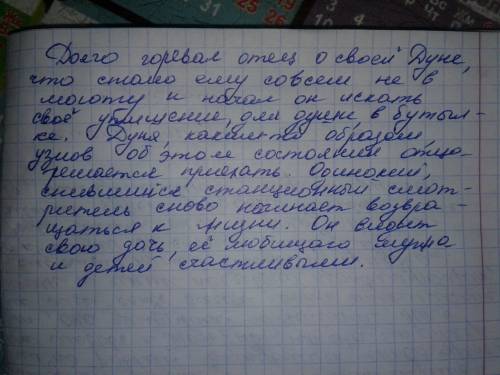 Долго горевал отец о своей Дуне,
что стало ему совсем не в
моготу и начал он искать
своё утишение, для души, в бутыл-
ке. Дуня, каким-то образом
узнов об этом состоянии отца
решается приехать. Одинокий,
спившийся станционный смот-
ритель снова начинает возвра-
щаться к жизни. Он видит
свою дочь, её любящего мужа
и детей счастливыми.
31
25
26